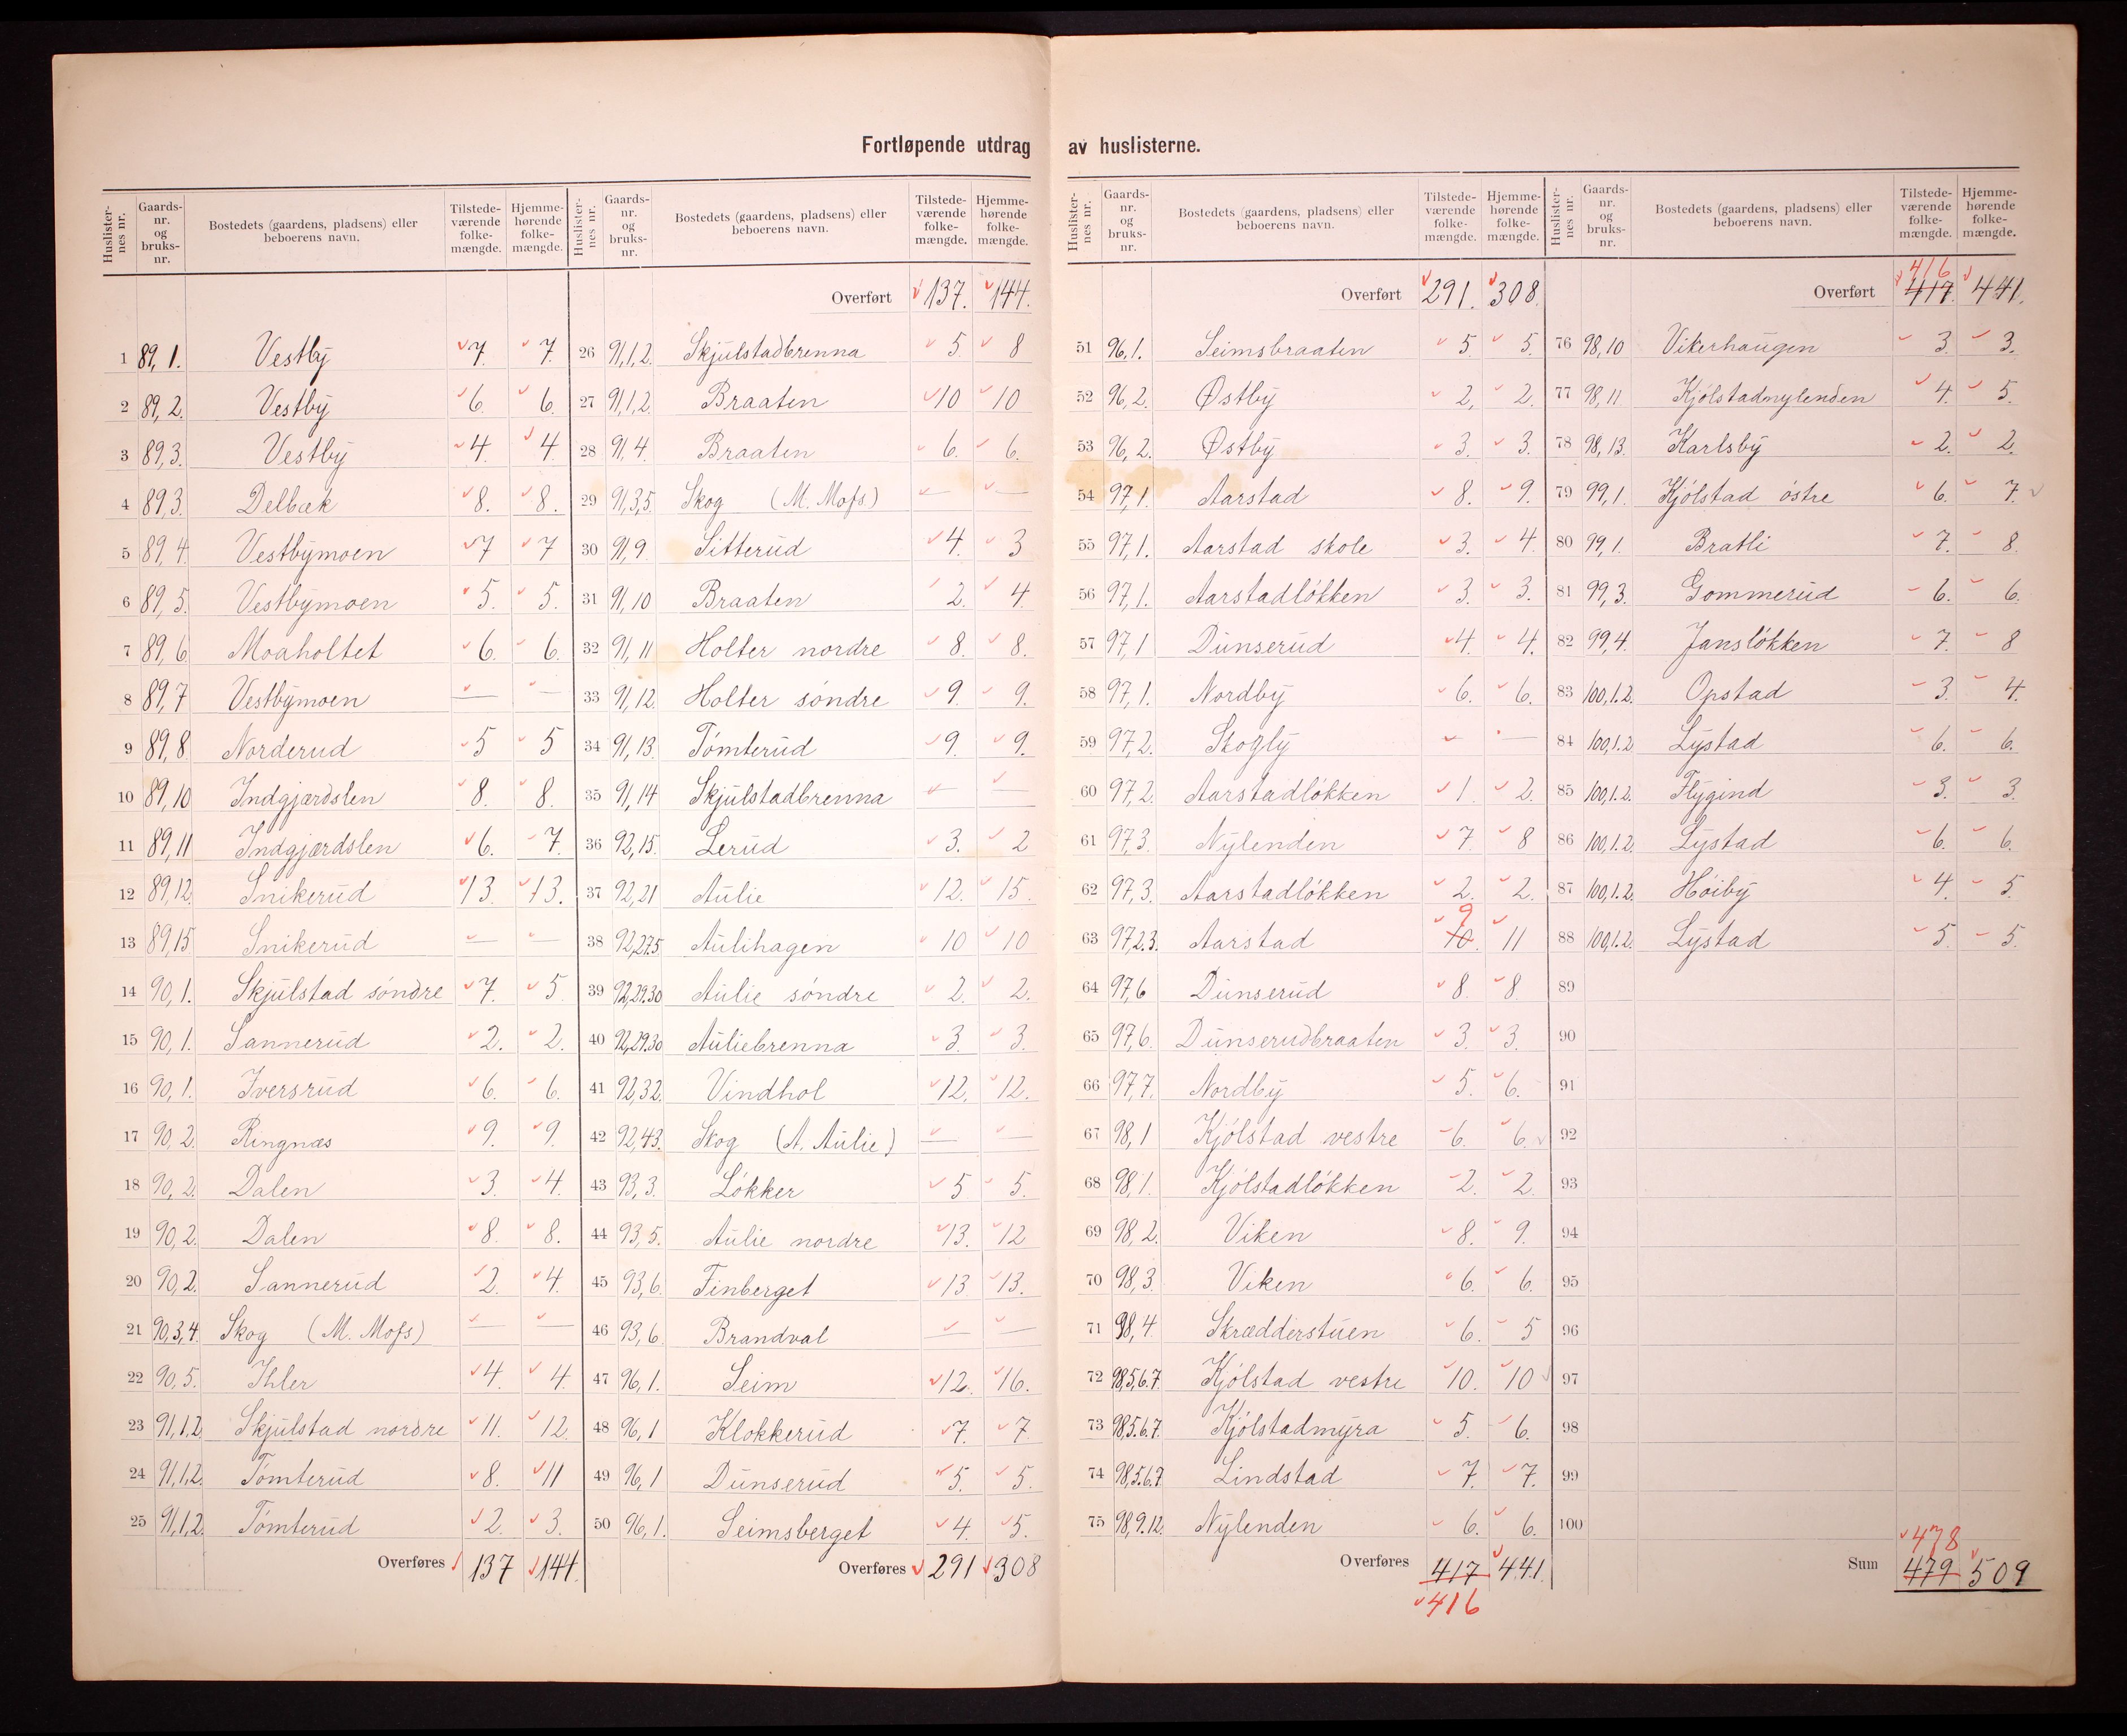 Fortløpende utdrag av huslisterne.
Huslister-nes nr. Gaards-nr. og bruks-nr. Bostedets (gaardens, pladsens) eller beboerens navn. Tilstede-værende folke-mængde. Hjemme-hørende folke-mængde.
1 89,1. Vestby 7. 7.
2 89,2. Vestby 6. 6.
3 89,3. Vestby 4. 4.
4 89,3. Delbæk 8. 8.
5 89,4. Vestbymoen 7 7
6 89,5. Vestbymoen 5. 5.
7 89,6 Moaholtet 6. 6.
8 89,7 Vestbymoen — —
9 89,8. Norderud 5 5
10 89,10 Indgjærdslen 8. 8.
11 89,11 Indgjærdslen 6. 7.
12 89,12. Snikerud 13. 13.
13 89,15 Snikerud — —
14 90,1. Skjulstad söndre 7. 5
15 90,1. Sannerud 2. 2.
16 90,1. Iversrud 6. 6.
17 90,2. Ringnæs 9. 9.
18 90,2. Dalen 3. 4.
19 90,2. Dalen 8. 8.
20 90,2. Sannerud 2. 4.
21 90,3,4. Skog (M. Mofs) — —
22 90,5. Ihler 4. 4.
23 91,1,2. Skjulstad nordre 11. 12.
24 91,1,2. Tömterud 8. 11
25 91,1,2. Tömterud 2. 3.
Overføres 137 144.
Huslister-nes nr. Gaards-nr. og bruks-nr. Bostedets (gaardens, pladsens) eller beboerens navn. Tilstede-værende folke-mængde. Hjemme-hørende folke-mængde.
Overført 137. 144.
26 91,1,2. Skjulstadbrenna 5. 8
27 91,1,2. Braaten 10 10
28 91,4. Braaten 6. 6.
29 91,3,5. Skog (M. Mofs) — —
30 91,9. Sitterud 4. 3
31 91,10 Braaten 2. 4.
32 91,11 Holter nordre 8. 8.
33 91,12. Holter söndre 9. 9.
34 91,13. Tömterud 9. 9.
35 91,14 Skjulstadbrenna — —
36 92,15. Lerud 3. 2
37 92,21 Aulie 12. 15.
38 92,27.5 Aulihagen 10 10
39 92,29.30 Aulie söndre 2. 2.
40 92,29.30 Auliebrenna 3. 3.
41 92,32. Vindhol 12. 12.
42 92,43. Skog (A. Aulie) — —
43 93,3. Lökker 5 5.
44 93,5. Aulie nordre 13. 12
45 93,6. Finberget 13 13.
46 93,6. Brandval — —
47 96,1. Seim 12. 16.
48 96,1 Klokkerud 7. 7
49 96,1 Dunserud 5. 5.
50 96,1. Seimsberget 4. 5.
Overføres 291 308
Huslister-nes nr. Gaards-nr. og bruks-nr. Bostedets (gaardens, pladsens) eller beboerens navn. Tilstede-værende folke-mængde. Hjemme-hørende folke-mængde.
Overført 291. 308.
51 96,1. Seimsbraaten 5. 5.
52 96,2. Østby 2, 2.
53 96,2. Østby 3. 3.
54 97,1. Aarstad 8. 9.
55 97,1. Aarstad skole 3. 4.
56 97,1. Aarstadlökken 3. 3.
57 97,1 Dunserud 4. 4.
58 97,1. Nordby 6. 6.
59 97,2. Skogly — —
60 97,2. Aarstadlökken 1. 2.
61 97,3. Nylenden 7. 8
62 97,3. Aarstadlökken 2. 2.
63 97,2.3. Aarstad 10. 9 11
64 97,6 Dunserud 8. 8.
65 97,6. Dunserudbraaten 3. 3.
66 97,7. Nordby 5. 6.
67 98,1 Kjölstad vestre 6. 6.
68 98,1. Kjölstadlökken 2. 2.
69 98,2. Viken 8. 9.
70 98,3. Viken 6. 6.
71 98,4. Skrædderstuen 6. 5
72 98,5,6.7. Kjölstad vestre 10. 10
73 98,5.6.7. Kjölstadmyra 5. 6.
74 98,5.6.7. Lindstad 7. 7.
75 98,9.12. Nylenden 6. 6.
Overføres 417 441.
416
Huslister-nes nr. Gaards-nr. og bruks-nr. Bostedets (gaardens, pladsens) eller beboerens navn. Tilstede-værende folke-mængde. Hjemme-hørende folke-mængde.
416
Overført 417. 441.
76 98,10 Vikerhaugen 3. 3.
77 98,11 Kjölstadnylenden 4. 5.
78 98,13. Karlsby 2. 2.
79 99,1. Kjölstad östre 6. 7.
80 99,1. Bratli 7. 8.
81 99,3. Gommerud 6. 6.
82 99,4. Janslökken 7. 8
83 100,1.2. Opstad 3. 4.
84 100,1.2 Lystad 6. 6.
85 100,1.2. Flygind 3. 3.
86 100,1.2. Lystad 6. 6.
87 100,1.2. Höiby 4. 5.
88 100,1.2. Lystad 5. 5.
89
90
91
92
93
94
95
96
97
98
99
100
478
Sum 479 509